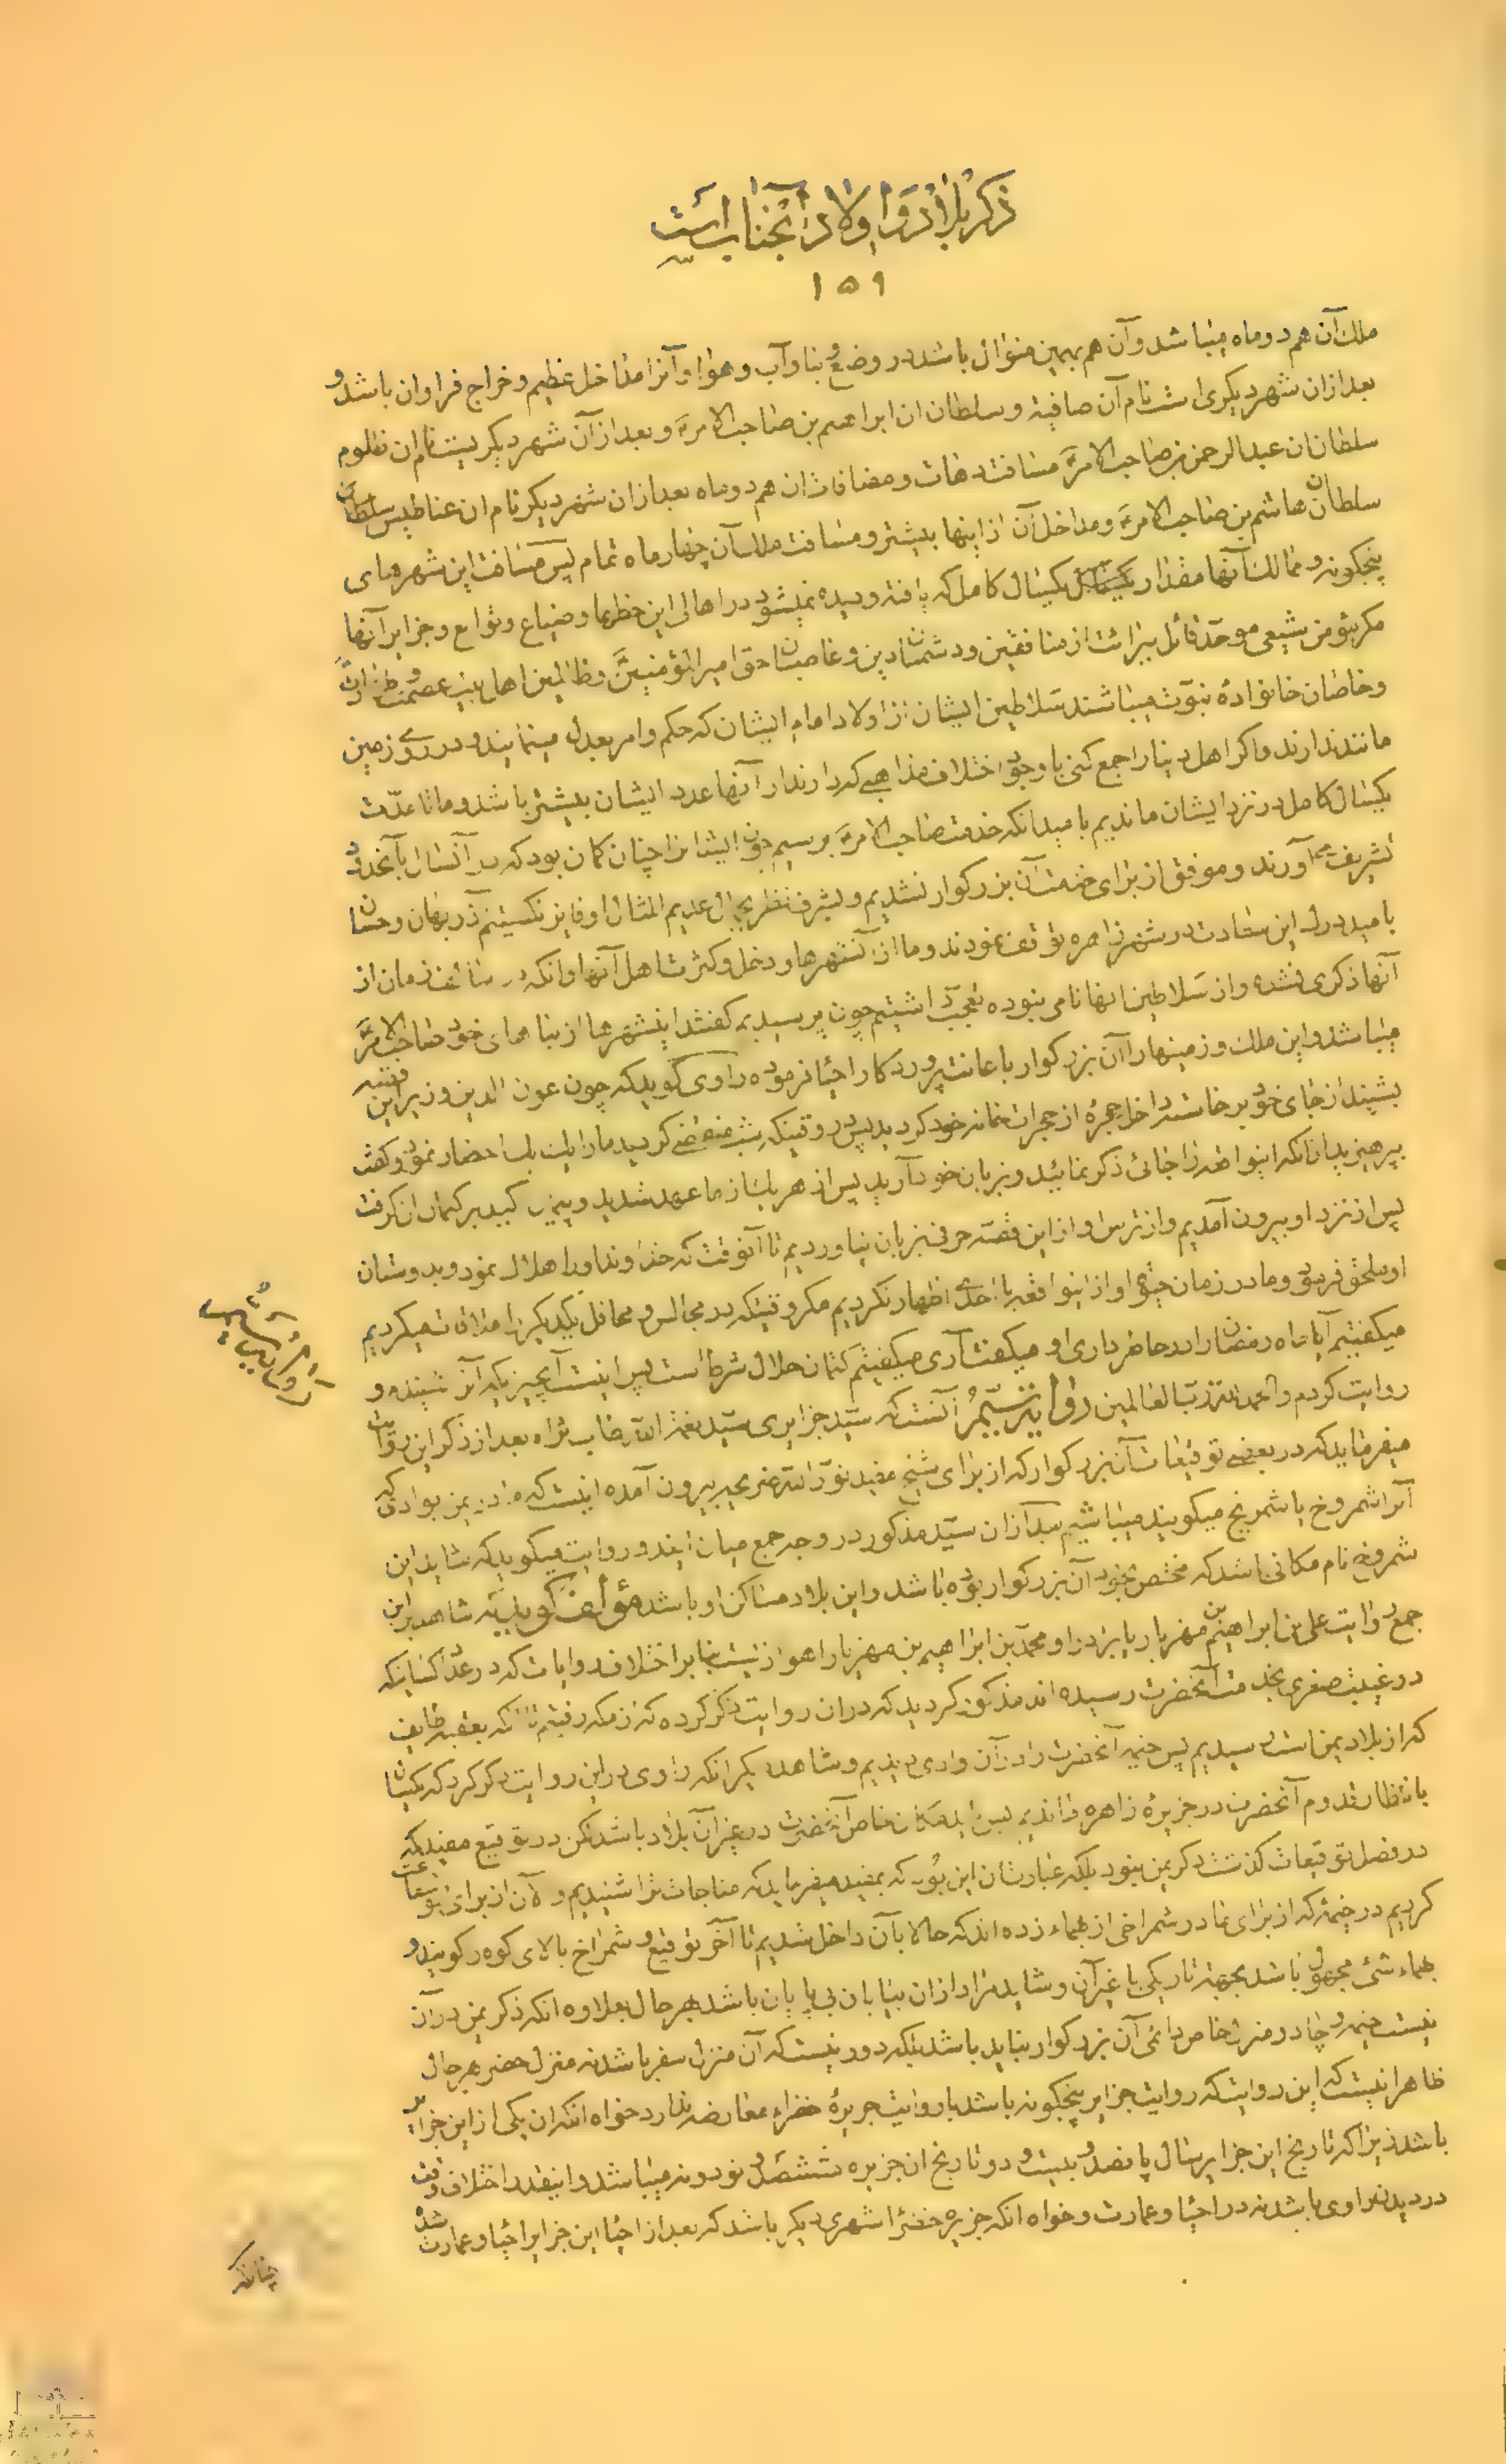 ذکر بلاد و اولاد آنجناب است
۱۵۹
ملک آن هم دو ماه میباشد و آن هم بهمین منوال باشد در وضع و بنا و آب و هوا و آنرا مداخل عظیم و خراج فراوان باشد و
بعد ازان شهر دیگری است نام آن صافیه و سلطان ان ابراهیم بن صاحب الامر و بعد از آن شهر دیگریست نام ان ظلوم
سلطان ان عبدالرحمن بن صاحب الامر مسافت دهات و مضافات ان هم دو ماه بعد ازان شهر دیگر نام ان عناطیس سلطان آن
سلطان هاشم بن صاحب الامر و مداخل آن از اینها بیشتر و مسافت ملک آن چهار ماه تمام پس مسافت این شهرهای
پنجگونه و ممالک آنها مقدار یکسال کامل که یافته و دیده نمیشود در اهالی این خطرها و ضیاع و توابع و جزایر آنها
مکر مؤمن شیعی موحد قائل ببرائت از منافقین و دشمنان دین و غاصبان حق امیرالمؤمنین و ظالمین اهل بیت عصمت و طهارت
و خاصان خانوادهٔ نبوت میباشند سلاطین ایشان از اولاد امام ایشان که حکم و امر بعدل مینمایند و در روی زمین
مانند ندارند و اکر اهل دنیا را جمع کنی با وجود اختلاف مذاهبی که دارند از آنها عدد ایشان بیشتر باشد و ما تا مدت
یکسال کامل در نزد ایشان ماندیم بامید انکه خدمت صاحب الامر برسیم چون ایشان را چنان کمان بود که در آنسال بآنحدود
تشریف می آورند و موفق از برای خدمت آن بزرکوار نشدیم و بشرف نظر بجمال عدیم المثال او فایز نکشتیم روزبهان و حسان
بامید درک این سعادت در شهر زاهره توقف نمودند و ما از آنشهرها و دخل و کثرت اهل آنها و انکه در سالف زمان از
آنها ذکری نشده و از سلاطین انها نامی نبوده تعجب داشتیم چون پرسیدیم کفتند اینشهرها از بناهای خود صاحب الامر
میباشد و این ملک و زمینها را آن بزرکوار باعانت پروردکار احیا فرموده راوی کوید که چون عون الدین وزیر این قصه
بشنید از جای خود برخاست داخل حجرهٔ از حجرات خانه خود کردید پس در وقتیکه شب منقضی کردید مارا یک یک احضار نمود و کفت
بپرهیزید از آنکه اینواقعه را جائی ذکر نمائید و بزبان خود آرید پس از هر یک از ما عهد شدید و یمین اکید بر کتمان ان کرفت
پس از نزد او بیرون آمدیم و از ترس او از این قصه حرفی بزبان نیاوردیم تا آنوقت که خداوند او را هلاک نمود و بدوستان
او ملحق فرمود و ما در زمان حیوة او از اینواقعه با احدی اظهار نکردیم مکر وقتیکه در مجالس و محافل یکدیکر را ملاقات میکردیم
میکفتیم آیا ماه رمضان را در خاطر داری او میکفت آری میکفتیم کتمان حلال شرط است پس اینست آنچیزیکه آنرا شنیده و
روایت کردم و الحمد لله رب العالمین آنست که سید جزایری سید نعمة الله طاب ثراه بعد از ذکر این روایت
میفرماید که در بعضی توقیعات آن بزرکوار که از برای شیخ مفید نور الله ضریحه بیرون آمده اینست که ما در یمن بوادی که
آنرا شمروخ یا شمریخ میکویند میباشیم بعد ازان سید مذکور در وجه جمع میان ایندو روایت میکوید که شاید این
شمروخ نام مکانی باشد که مختص بخود آن بزرکوار بوده باشد و این بلاد مساکن اولاد باشد مؤلف کوید که شاهد بر این
جمع روایت علی بن ابراهیم بن مهزیار یا برادر او محمد بن ابراهیم بن مهزیار اهوازیست بنابر اختلاف روایات که در عداد کسانیکه
در غیبت صغری بخدمت آنحضرت رسیده اند مذکور کردید که دران روایت ذکر کرده که از مکه رفتیم تا انکه بعقبه طایف
که از بلاد یمن است رسیدیم پس خیمه آنحضرت را در آن وادی دیدیم و شاهد دیکر انکه راوی در این روایت ذکر کرد که یکسال
بانتظار قدوم آنحضرت در جزیرهٔ زاهره ماندیم پس باید مکان خاص آنحضرت در غیر آن بلاد باشد لکن در توقیع مفید که
در فصل توقیعات کذشت ذکر یمن نبود بلکه عبارتشان این بود که بمفید میفرماید که مناجات ترا شنیدیم و الآن از برای تو شفاعت
کردیم در خیمهٔ که از برای ما در شمراخی از بهماء زده اند که حالا بآن داخل شدیم تا آخر توقیع و شمراخ بالای کوه را کویند و
بهماء شیئ مجهول باشد بجهة تاریکی یا غیر آن و شاید مراد ازان بیابان بی پایان باشد بهر حال بعلاوه انکه ذکر یمن در آن
نیست خیمه و چادر منزل خاص دائمی آن بزرکوار نباید باشد بلکه دور نیست که آن منزل سفر باشد نه منزل حضر بهر حال
ظاهر اینست که این روایت که روایت جزایر پنجکونه باشد با روایت جزیرهٔ خضراء معارضه ندارد خواه انکه ان یکی از این جزایر
باشد زیرا که تاریخ این جزایر سال پانصد و بیست و دو تاریخ ان جزیره ششصد و نود و نه میباشد و اینقدر اختلاف وقت
در دیدن راوی باشد نه در احیا و عمارت و خواه انکه جزیره خضرا شهری دیکر باشد که بعد از احیا این جزایر احیا و عمارت شده
چنانکه